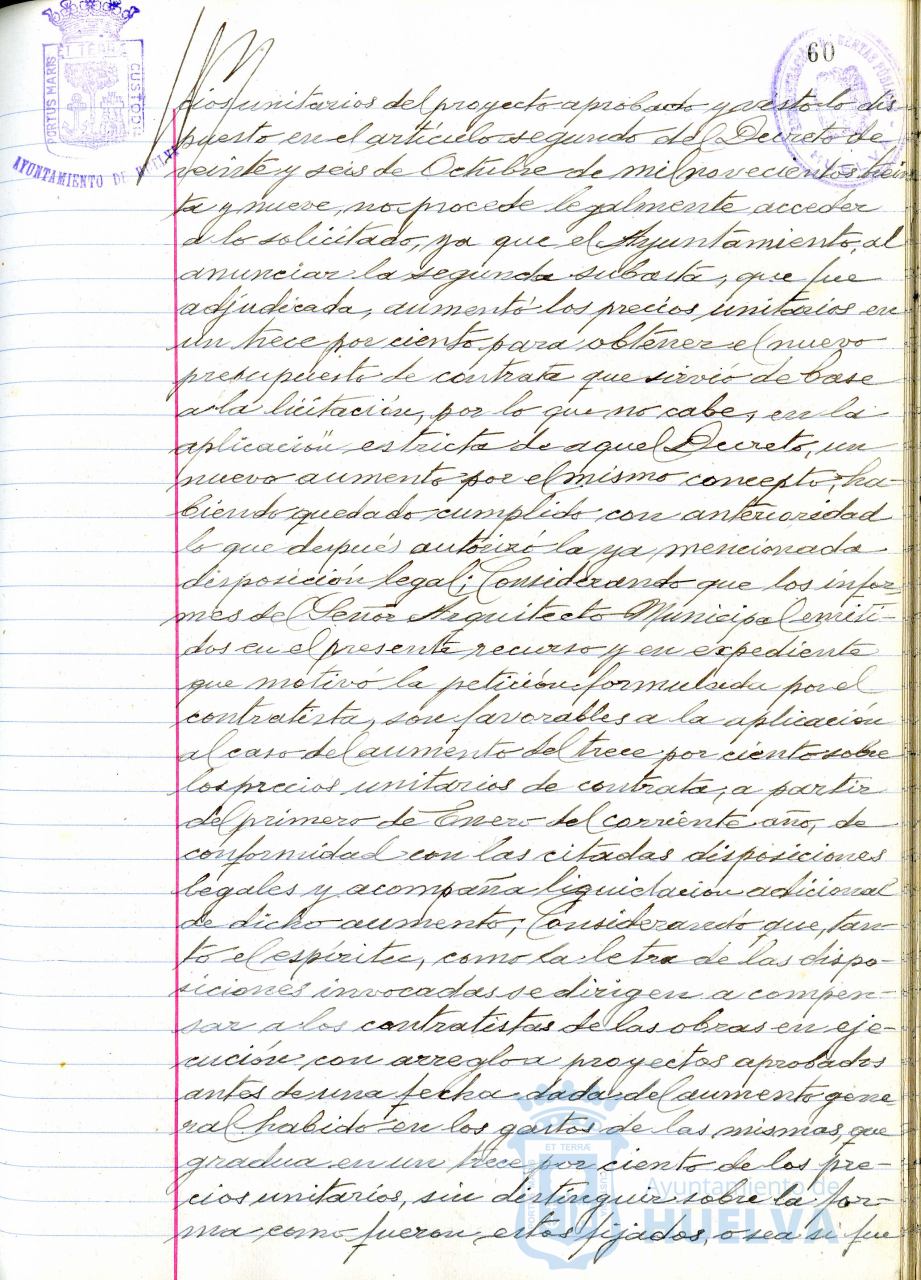 60
PORTUS MARIS ET TERRAE CUSTODIA
AYUNTAMIENTO DE HUELVA
HUELVA
cios unitarios del proyecto aprobado y visto lo dis-
puesto en el artículo segundo del Decreto de
veinte y seis de Octubre de mil novecientos trein-
ta y nueve, no procede legalmente acceder
a lo solicitado, ya que el Ayuntamiento, al
anunciar la segunda subasta, que fue
adjudicada, aumentó los precios unitarios en
un trece por ciento para obtener el nuevo
presupuesto de contrata que sirvió de base
a la licitación, por lo que no cabe, en la
aplicación estricta de aquel Decreto, un
nuevo aumento por el mismo concepto, ha-
biendo quedado cumplido con anterioridad
lo que después autorizó la ya mencionada
disposición legal; Considerando que los infor-
mes del Señor Arquitecto Municipal emiti-
dos en el presente recurso y en expediente
que motivó la petición formulada por el
contratista, son favorables a la aplicación
al caso del aumento del trece por ciento sobre
los precios unitarios de contrata, a partir
del primero de Enero del corriente año, de
conformidad con las citadas disposiciones
legales y acompaña liquidación adicional
de dicho aumento; Considerando que, tan-
to el espíritu, como la letra de las dispo-
siciones invocadas se dirigen a compen-
sar a los contratistas de las obras en eje-
cución con arreglo a proyectos aprobados
antes de una fecha dada del aumento gene-
ral habido en los gastos de las mismas, que
gradua en un trece por ciento de los pre-
cios unitarios, sin distinguir sobre la for-
ma como fueron estos fijados, o sea si fue
ET TERRÆ
Ayuntamiento de
HUELVA